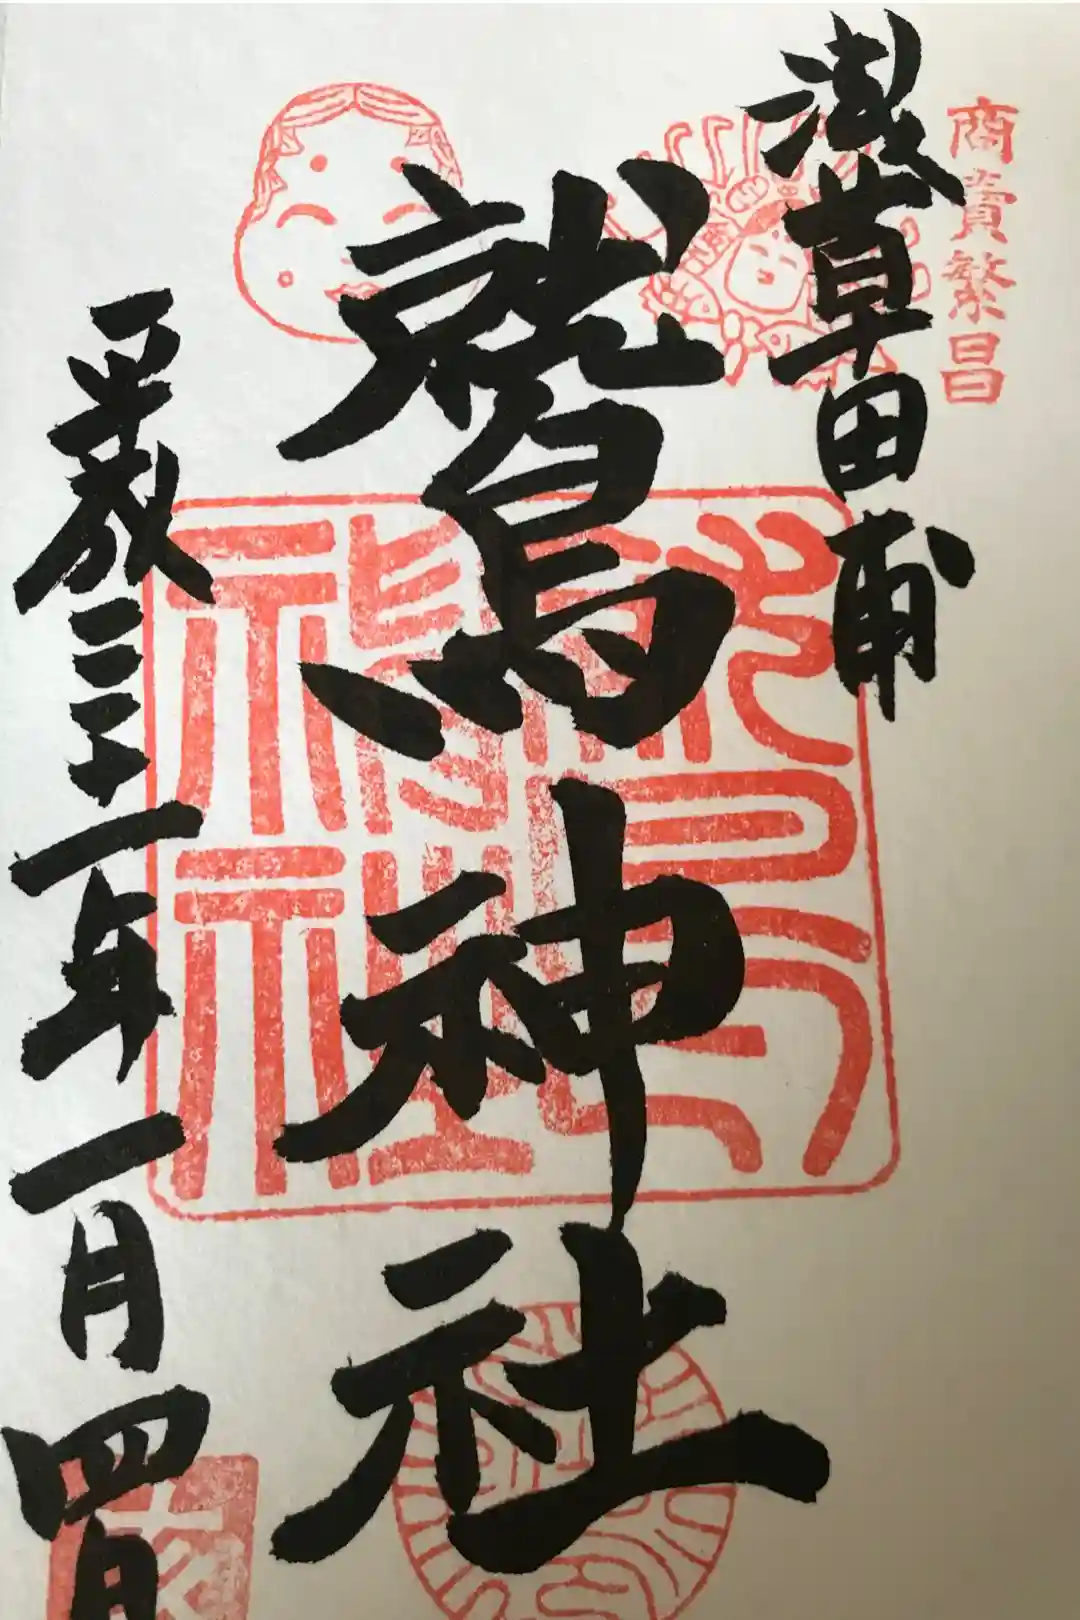 商賣繁昌
浅草田甫
鷲神社
平成三十一年一月四日